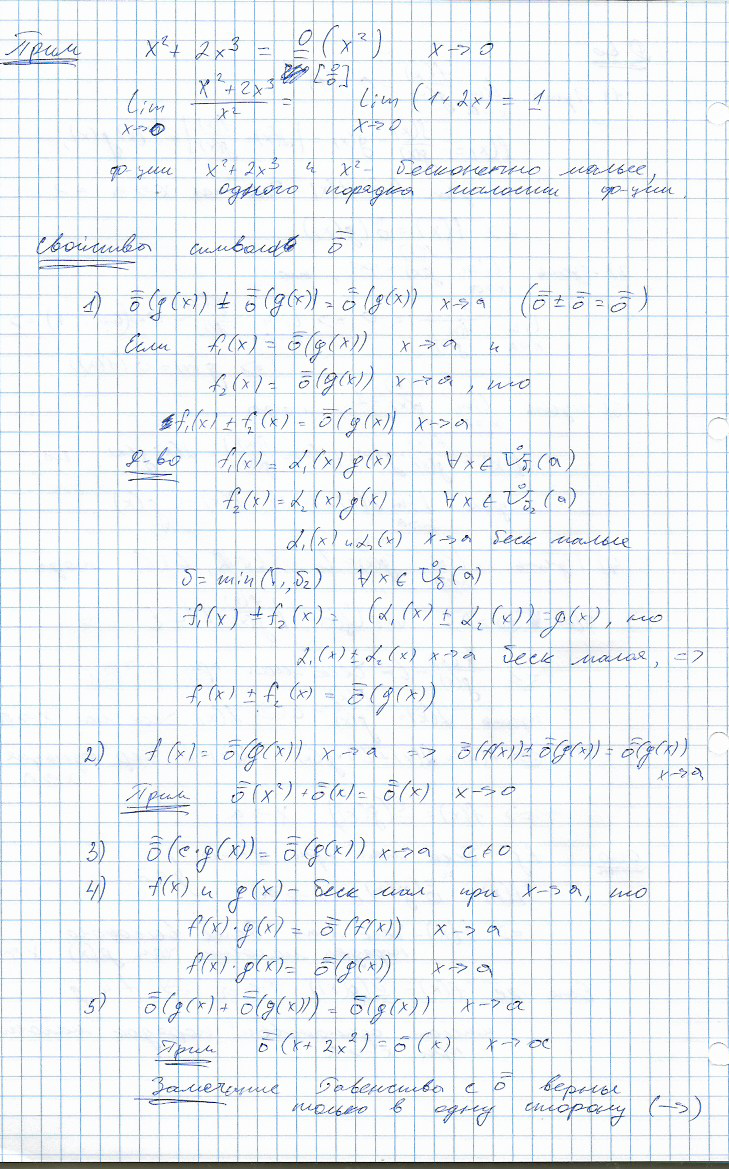 Прим x²+ 2x³ = O̲ (x²) x→0
lim x→0 (x²+2x³)/x² = [0/0] lim x→0 (1+2x) = 1
ф-ции x²+2x³ и x² - бесконечно малые,
одного порядка малости ф-ции.
Свойства символов ō̄
1) ō̄(g(x)) ± ō̄(g(x)) = ō̄(g(x)) x→a (ō̄ ± ō̄ = ō̄)
Если f₁(x) = ō̄(g(x)) x→a и
f₂(x) = ō̄(g(x)) x→a, то
f₁(x) ± f₂(x) = ō̄(g(x)) x→a
Д-во f₁(x) = α₁(x) g(x) ∀x ∈ Ů_δ₁(a)
f₂(x) = α₂(x) g(x) ∀x ∈ Ů_δ₂(a)
α₁(x) и α₂(x) x→a беск малые
δ = min(δ₁, δ₂) ∀x ∈ Ů_δ(a)
f₁(x) ± f₂(x) = (α₁(x) ± α₂(x)) g(x), но
α₁(x) ± α₂(x) x→a беск малая, =>
f₁(x) ± f₂(x) = ō̄(g(x))
2) f(x) = ō̄(g(x)) x→a => ō̄(f(x)) ± ō̄(g(x)) = ō̄(g(x))
x→a
Прим ō̄(x²) + ō̄(x) = ō̄(x) x→0
3) ō̄(c·g(x)) = ō̄(g(x)) x→a c≠0
4) f(x) и g(x) - беск мал при x→a, то
f(x)·g(x) = ō̄(f(x)) x→a
f(x)·g(x) = ō̄(g(x)) x→a
5) ō̄(g(x) + ō̄(g(x))) = ō̄(g(x)) x→a
Прим ō̄(x + 2x²) = ō̄(x) x→a
Замечание Равенства с ō̄ верны
только в одну сторону (→)